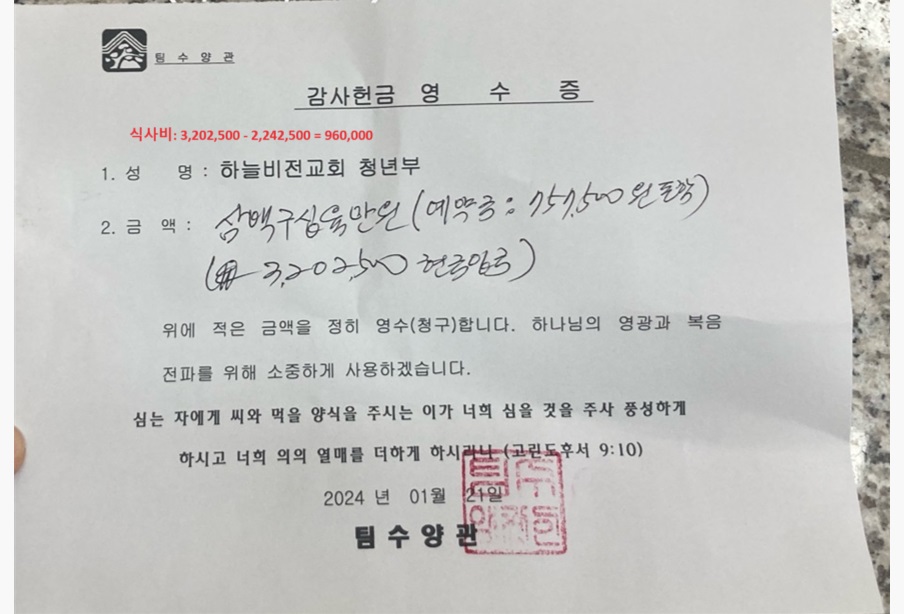 팀 수 양 관
감사헌금 영 수 증
식사비: 3,202,500 - 2,242,500 = 960,000
1. 성 명 : 하늘비전교회 청년부
2. 금 액 : 삼백구십육만원 (예약금 : 757,500원 포함)
3,202,500 현금입금)
위에 적은 금액을 정히 영수(청구)합니다. 하나님의 영광과 복음
전파를 위해 소중하게 사용하겠습니다.
심는 자에게 씨와 먹을 양식을 주시는 이가 너희 심을 것을 주사 풍성하게
하시고 너희 의의 열매를 더하게 하시리니 (고린도후서 9:10)
2024 년 01월 21일
팀 수 양 관